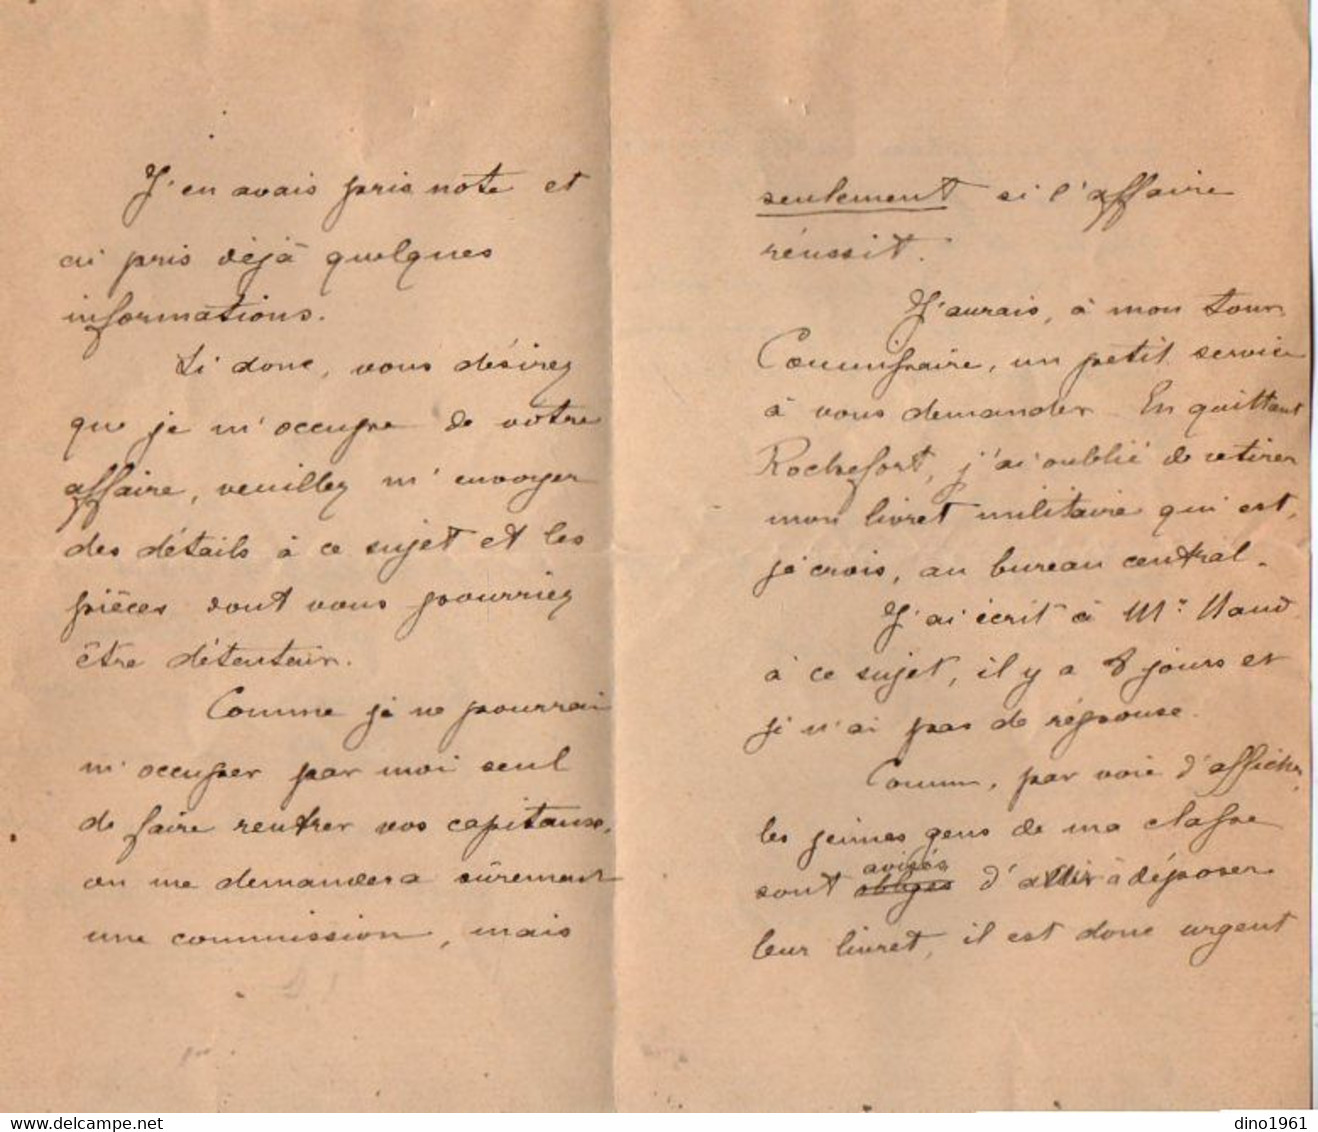 J'en avais pris note et
ai pris déjà quelques
informations.
Si donc, vous désirez
que je m'occupe de votre
affaire, veuillez m'envoyer
des détails à ce sujet et les
pièces dont vous pourriez
être détenteur.
Comme je ne pourrai
m'occuper par moi seul
de faire rentrer vos capitaux,
on me demandera sûrement
une commission, mais
seulement si l'affaire
réussit.
J'aurais, à mon tour
Commissaire, un petit service
à vous demander. En quittant
Rochefort, j'ai oublié de retirer
mon livret militaire qui est,
je crois, au bureau central.
J'ai écrit à Mr
à ce sujet, il y a 8 jours et
je n'ai pas de réponse.
Comme, par voie d'affiches,
les jeunes gens de ma classe
sont obligés avisés d'aller à déposer
leur livret, il est donc urgent
dino1961